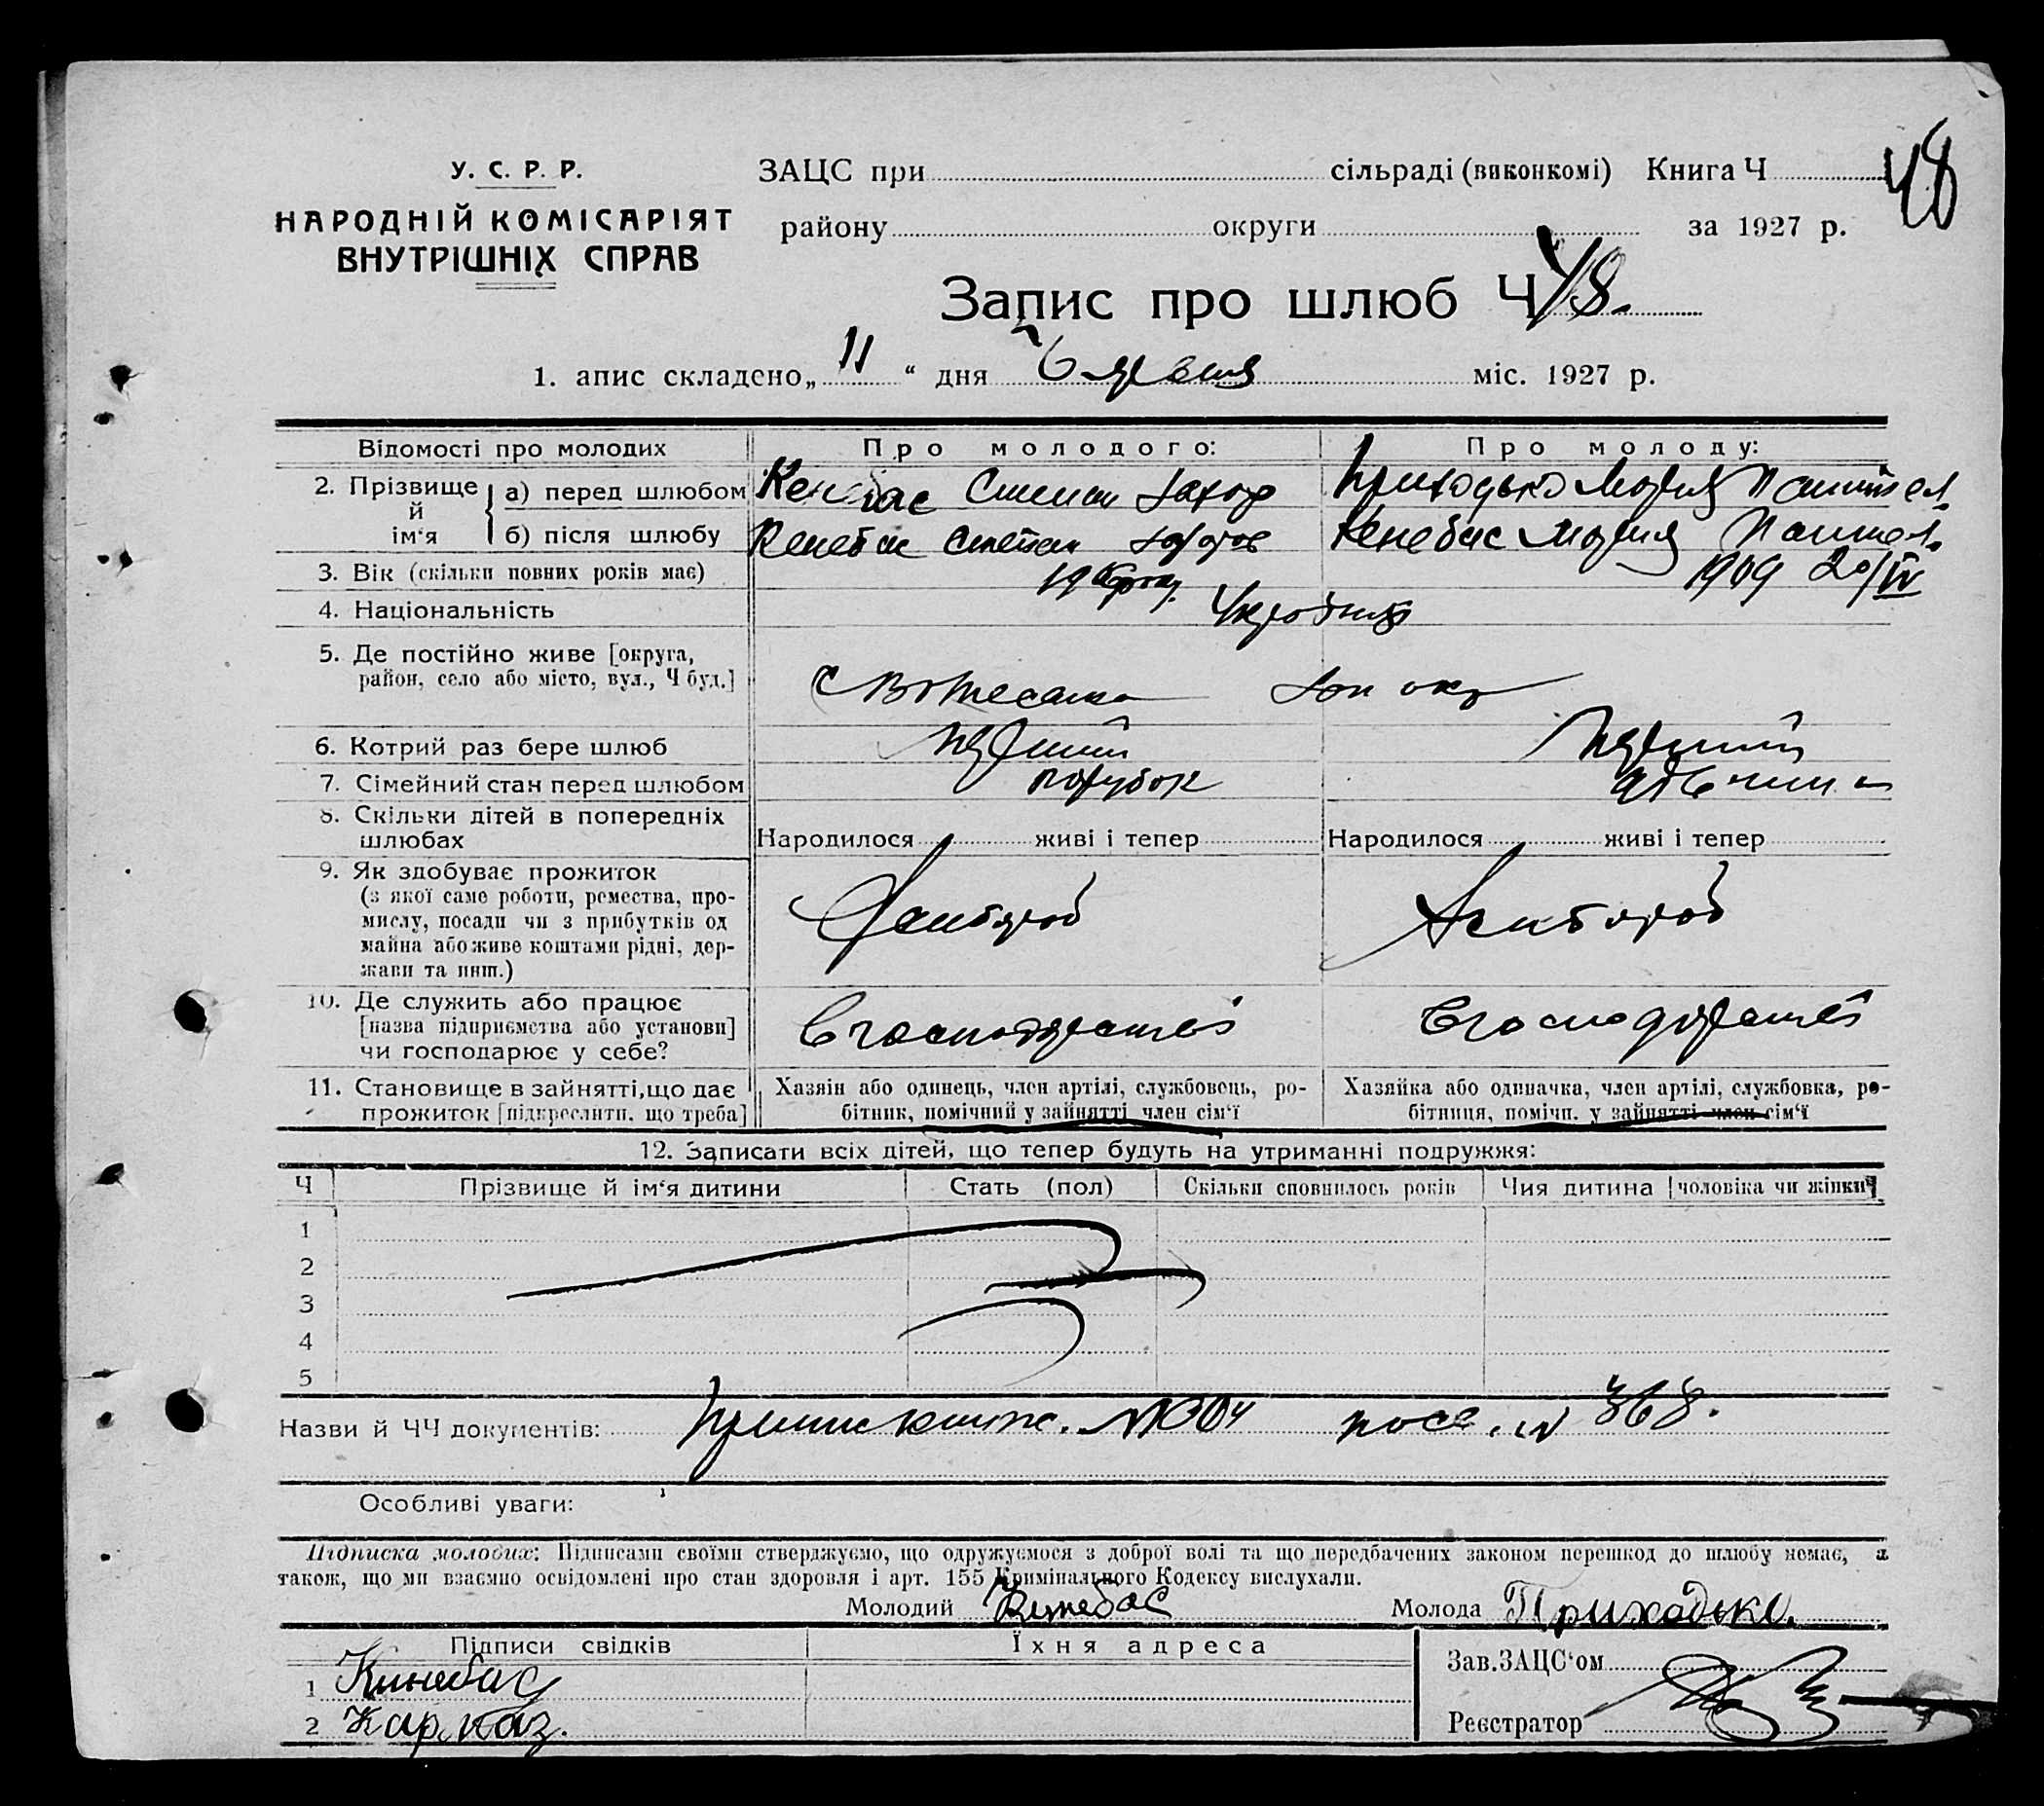 48
У. С. Р. Р.
НАРОДНІЙ КОМІСАРІЯТ
ВНУТРІШНІХ СПРАВ
ЗАЦС при сільраді (виконкомі) Книга Ч
району округи за 1927 р.
Запис про шлюб Ч 48.
1. апис складено „11“ дня міс. 1927 р.
Відомості про молодих Про молодого: Про молоду:
2. Прізвище й ім‘я а) перед шлюбом Кенебас Степан Захор Приходько Мария
б) після шлюбу Кенебас Степан Кенебас Мария
3. Вік (скільки повних років має) 1909 20/IV
4. Національність
5. Де постійно живе [округа,
район, село або місто, вул., Ч буд.]
6. Котрий раз бере шлюб перший перший
7. Сімейний стан перед шлюбом парубок дівчина
8. Скільки дітей в попередніх
шлюбах Народилося живі і тепер Народилося живі і тепер
9. Як здобуває прожиток
(з якої саме роботи, ремества, про-
мислу, посади чи з прибутків од
майна або живе коштами рідні, дер-
жави та инш.)
Хлібороб Хлібороб
10. Де служить або працює
[назва підприємства або установи]
чи господарює у себе?
11. Становище в зайнятті, що дає
прожиток [підкреслити, що треба]
Хазяїн або одинець, член артілі, службовець, ро-
бітник, помічний у зайнятті член сім‘ї
Хазяйка або одиначка, член артілі, службовка, ро-
бітниця, помічн. у зайнятті член сім‘ї
12. Записати всіх дітей, що тепер будуть на утриманні подружжя:
Ч Прізвище й ім‘я дитини Стать (пол) Скільки сповнилось років Чия дитина [чоловіка чи жінки]
1
2
3
4
5
Назви й ЧЧ документів: 368.
Особливі уваги:
Підписка молодих: Підписами своїми стверджуємо, що одружуємося з доброї волі та що передбачених законом перешкод до шлюбу немає, а
також, що ми взаємно освідомлені про стан здоровля і арт. 155 Кримінального Кодексу вислухали.
Молодий Кенебас Молода Приходько.
Підписи свідків Їхня адреса
1 Кинебас
2 Карказ.
Зав. ЗАЦС‘ом
Реєстратор